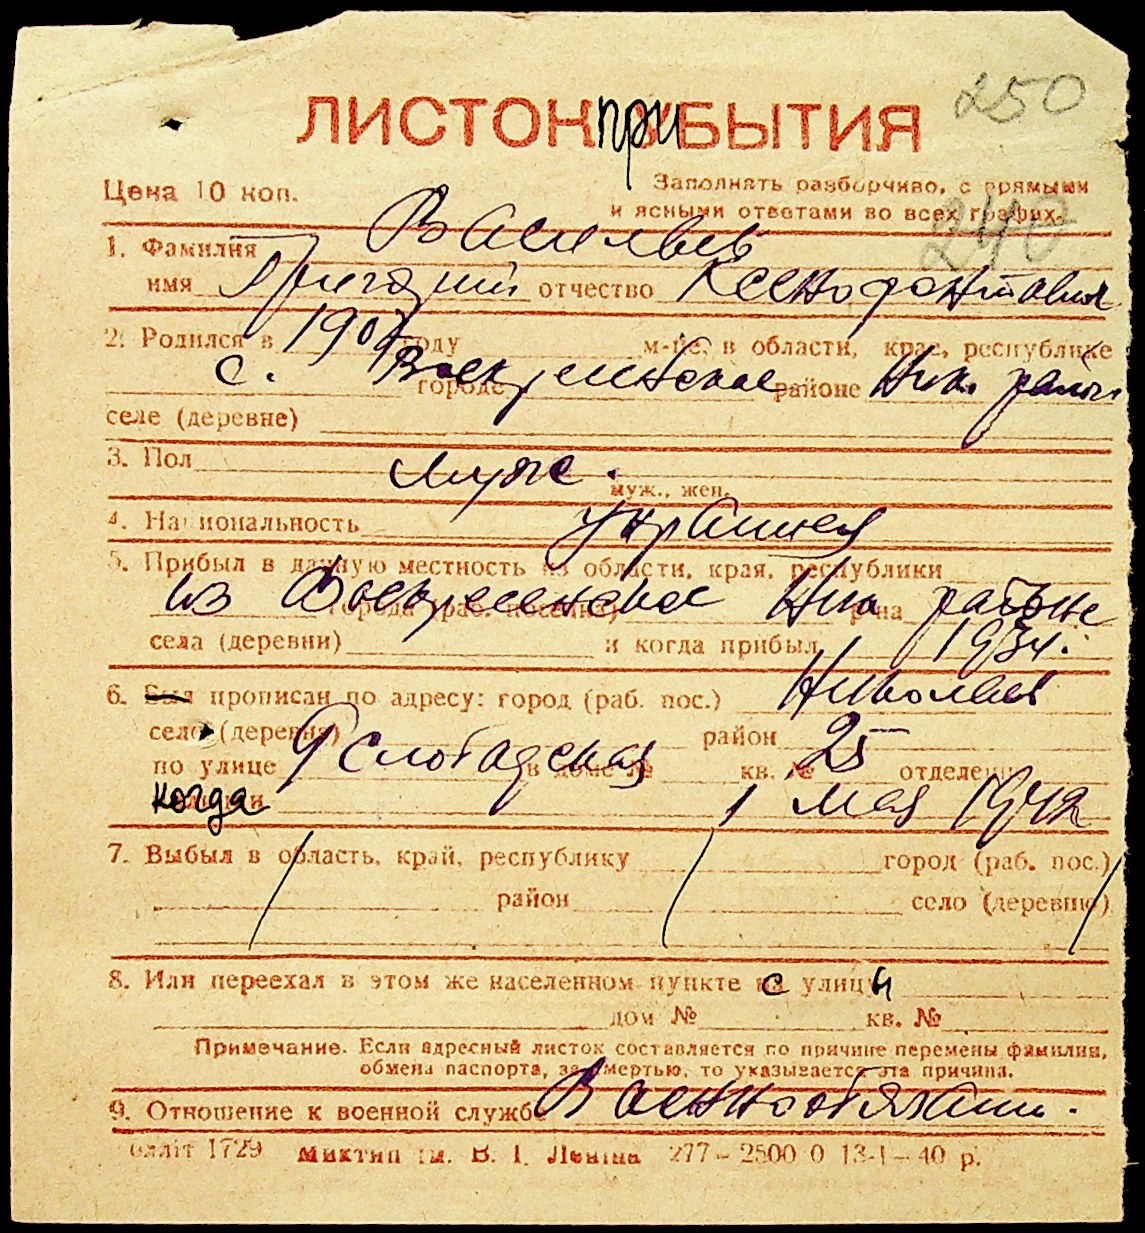 250
ЛИСТОК при БЫТИЯ
Цена 10 коп.
Заполнять разборчиво, с прямыми
и ясными ответами во всех графах.
240
1. Фамилия Васильев
имя Григорий отчество Ксенофонтович
2. Родился в году м-це, в области, крае, республике
с. Воскресенское городе районе Ник. район
селе (деревне)
3. Пол муж.
муж., жен.
4. Национальность украинец
5. Прибыл в данную местность из области, края, республики
из Воскресенское города (раб. поселка) Ник р-на районе
села (деревни) и когда прибыл 1934.
6. Был прописан по адресу: город (раб. пос.) Николаев
село (деревня) район
по улице 9 Слободская в доме № кв. № 25 отделен
когда 1 мая 1942
7. Выбыл в область, край, республику город (раб. пос.)
район село (деревню)
8. Или переехал в этом же населенном пункте с улицы
дом № кв. №
Примечание. Если адресный листок составляется по причине перемены фамилии,
обмена паспорта, за смертью, то указывается эта причина.
9. Отношение к военной службе Военнообязан.
1729 Миктип ім. В. І. Леніна 277 – 2500 0 13-I – 40 р.